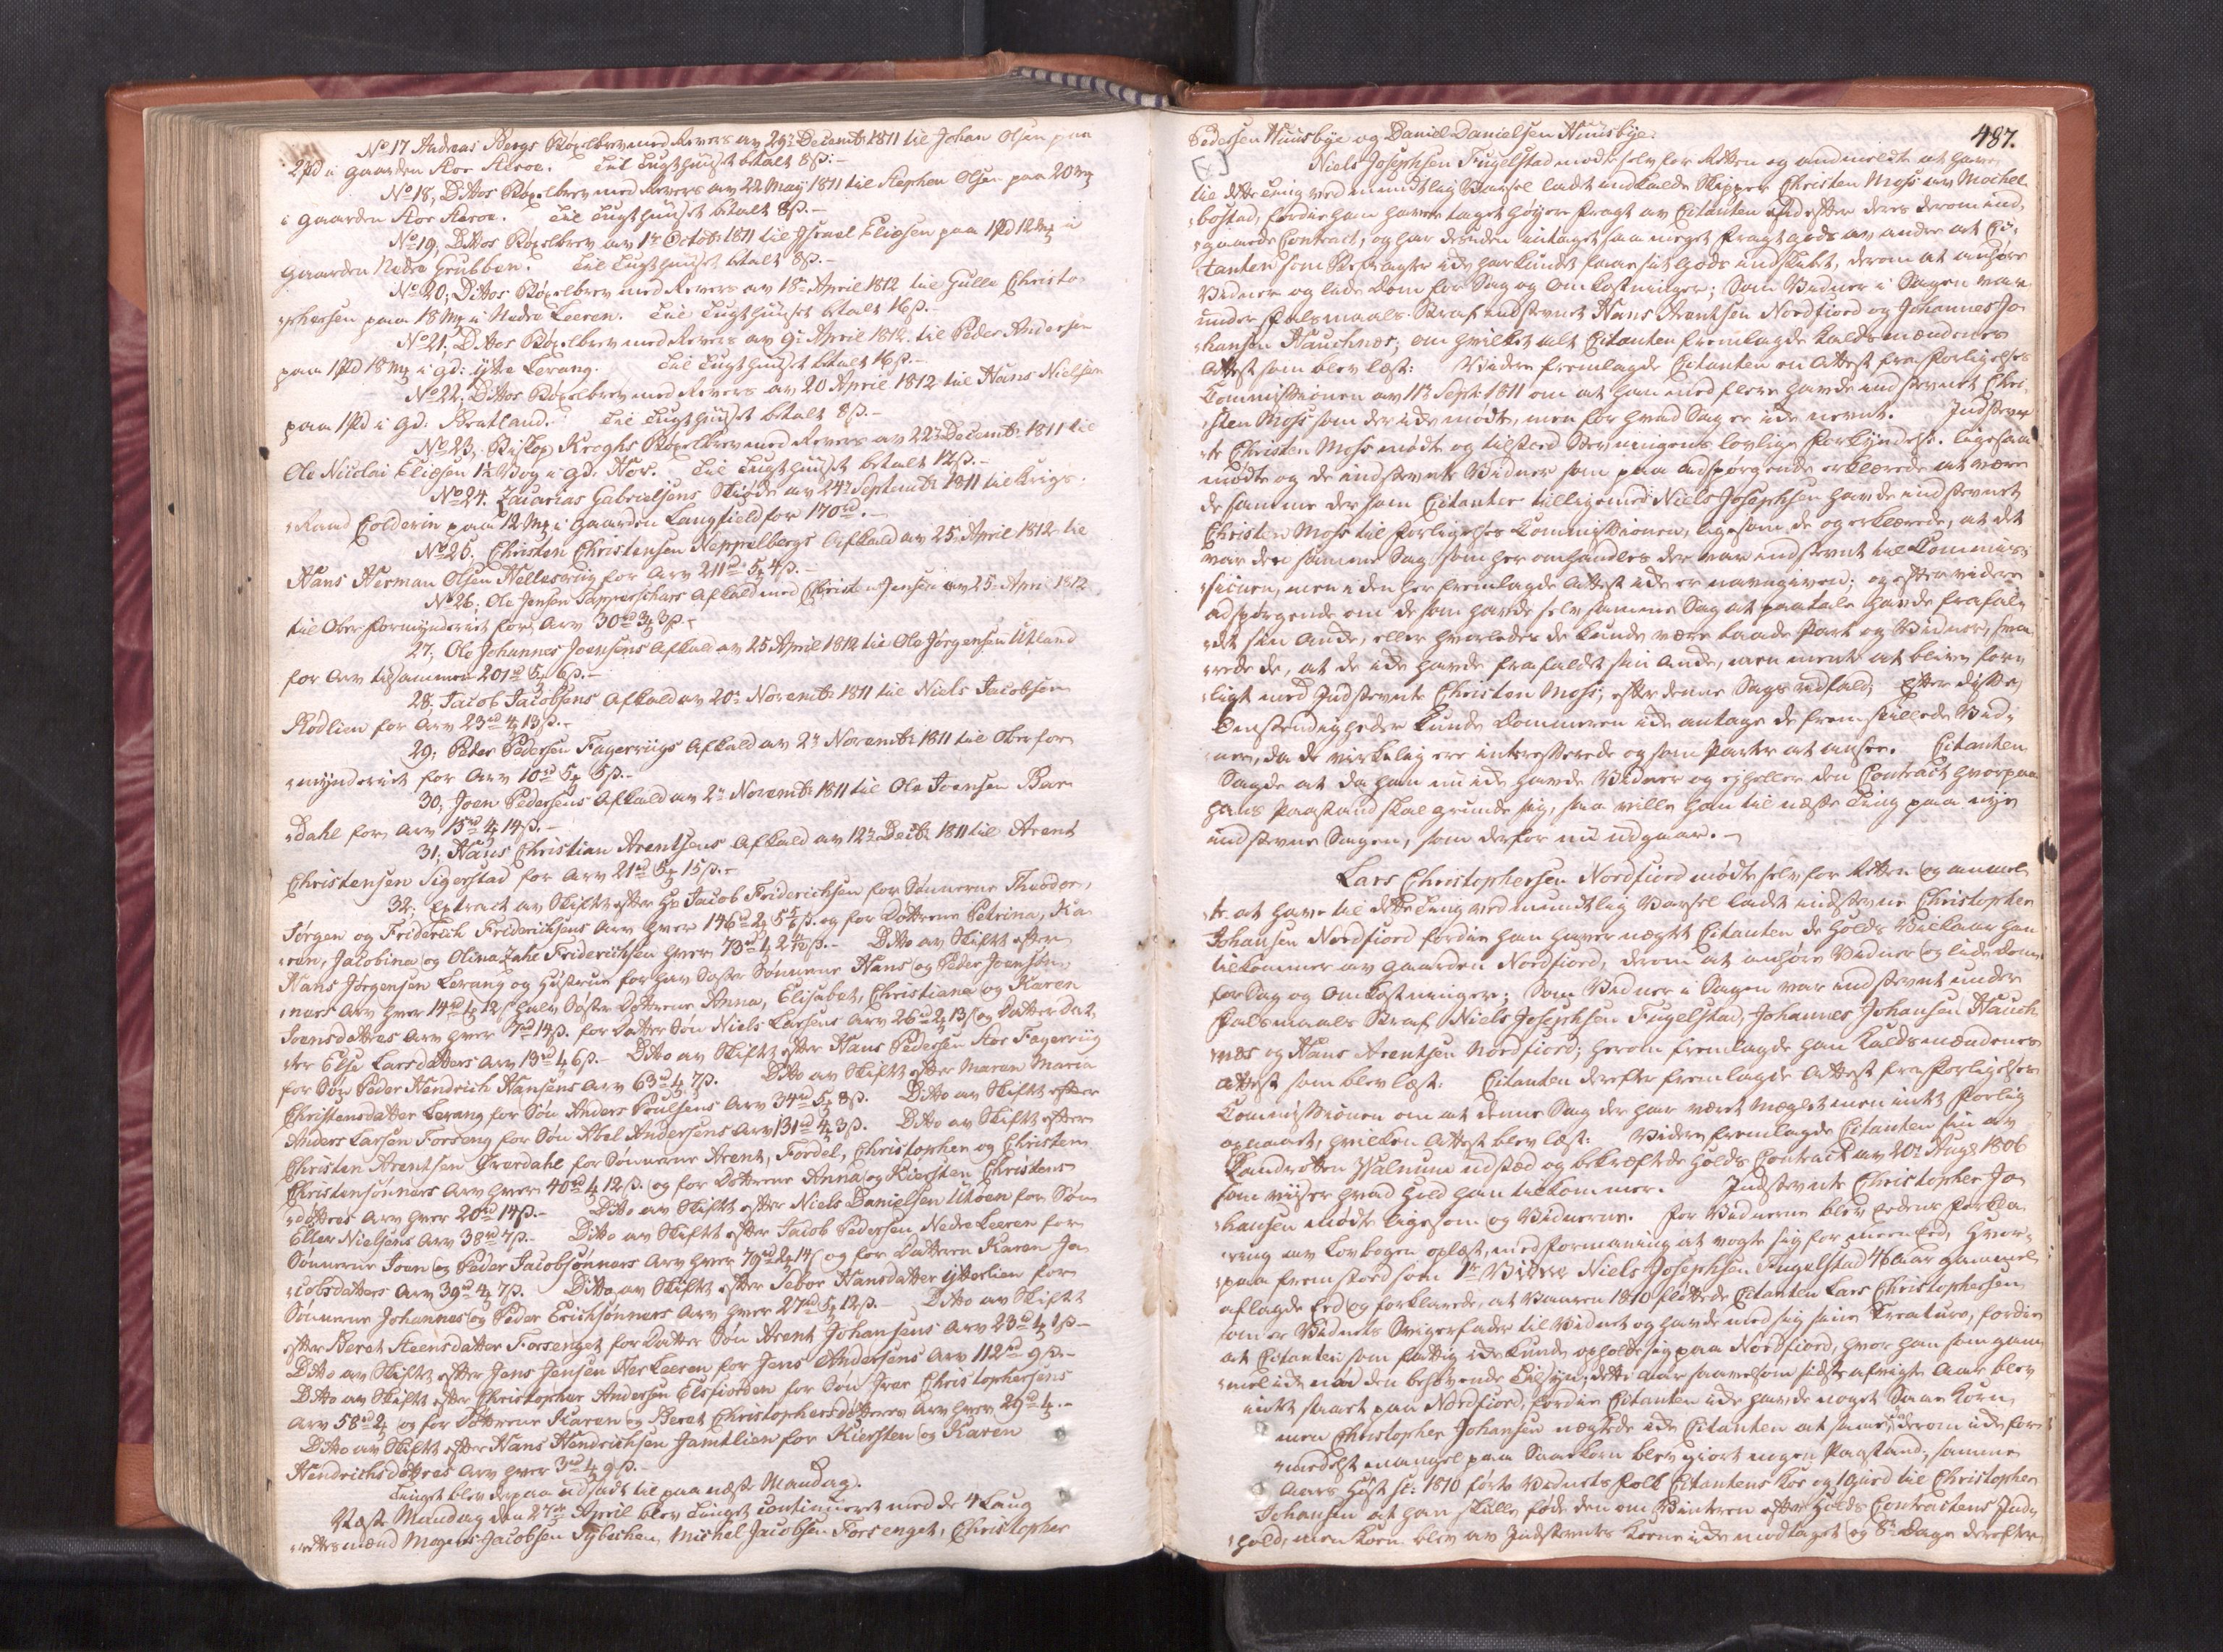 No 17 Andreas Bergs Bøxelbrev med Revers av 29de Decembr 1811 til Johan Olsen paa
2 pd i gaarden Stor Alsøe. Til Tugthuuset betalt 8 ß.-
No 18, Dittos Bøxelbrev med Revers av 22 May 1811 til Stephen Olsen paa 20 mk
i gaarden Stor Alsøe. Til Tugthuuset betalt 8 ß.-
No 19, Dittos Bøxelbrev av 1te Octobr 1811 til Israel Eliasen paa 1 pd 12 mk i
gaarden Nedre Grubben. Til Tugthuuset betalt 8 ß.-
No 20, Dittos Bøxelbrev med Revers av 18de April 1812 til Gulle Christo-
phersen paa 18 mk i Nedre Leeren. Til Tugthuuset betalt 16 ß.-
No 21, Dittos Bøxelbrev med Revers av 9de April 1812 til Peder Andersen
paa 1 pd 18 mk i gd: Ytre Lerang. Til Tugthuuset betalt 16 ß.-
No 22, Dittos Bøxelbrev med Revers av 20 April 1812 til Hans Nielsen
paa 1 pd i gd: Bratland. Til Tugthuuset betalt 8 ß.-
No 23, Biskop Kroghs Bøxelbrev med Revers av 22de Decembr 1811 til
Ole Nicolai Eliasen 1½ Vog i gd. Nes. Til Tugthuuset betalt 12 ß.-
No 24. Zacarias Gabrielsens Skiøde av 24de Septembr 1811 til Krigs-
Raad Colderin paa 12 mk i gaarden Langfield for 170 rd.-
No 25. Christen Christensen Neppelbergs Afkald av 25 April 1812 til
Hans Herman Olsen Hellesvig for Arv 211 rd 5 4 ß.-
No 26, Ole Jensen Tapperskars Afkald med Christen Jensen av 25 April 1812
til Ober-formynderiet for Arv 30 rd 3 3 ß.-
27, Ole Johannes Joensens Afkald av 25 April 1812 til Ole Jørgensen Utland
for Arv tilsammen 201 rd 5 6 ß.-
28, Jacob Jacobsens Afkald av 20de Novembr 1811 til Niels Jacobsen
Rødlien for Arv 23 rd 4 13 ß.-
29, Peder Pedersen Fagerviigs Afkald av 2de Novembr 1811 til Oberfor-
mynderiet for Arv 10 rd 5 5 ß.-
30, Joen Pedersens Afkald av 2de Novembr 1811 til Ole Joensen Bar-
dahl for Arv 15 rd 4 14 ß.-
31, Hans Christian Arentsens Afkald av 12te Decbr 1811 til Arent
Christensen Sigerstad for Arv 21 rd 5 15 ß.-
32, Extract av Skiftet efter Hr Jacob Friderichsen for Sønnerne Theodor,
Jørgen og Friderich Friderichsens Arv hver 146 rd 2 5 ß. og for Døttrene Petrina, Ka-
ren, Jacobina og Olina Jahl Friderichsen hver 73 rd 1 2 ß.- Ditto av Skiftet efter
Hans Jørgensen Lerang og Hustrue for hans Søster Sønnerne Hans og Peder Joensøn-
ners Arv hver 14 rd 4 12 ß halv Søster Døttrene Anna, Elisabet, Christiana og Karen
Joensdatters Arv hver 7 rd 14 ß. for Datter Søn Niels Larsens Arv 26 rd 2 13 ß og Datter Dat-
ter Else Larsdatters Arv 13 rd 4 6 ß.- Ditto av Skiftet efter Hans Pedersen Stor Fagerviig
for Søn Peder Hendrich Hansens Arv 63 rd 4 7 ß. Ditto av Skiftet efter Maren Maria
Christensdatter Lerang for Søn Anders Poulsens Arv 34 rd 5 8 ß. Ditto av Skiftet efter
Anders Larsen Forseng for Søn Abel Andersens Arv 131 rd 4 3 ß. Ditto av Skiftet efter
Christen Arentsen Øverdahl for Sønnerne Arent, Fordel, Christopher og Christen
Christensønners Arv hver 40 rd 4 12 ß. og for Døttrene Anna og Kiersten Christens-
døttres Arv hver 20 rd 14 ß.- Ditto av Skiftet efter Niels Danielsen Utøen for Søn
Eller Nielsens Arv 38 rd 7 ß.- Ditto av Skiftet efter Jacob Pedersen Nedre Leeren for
Sønnerne Joen og Peder Jacobsønners Arv hver 79 rd 2 14 ß og for Datteren Karen Ja-
cobsdatters Arv 39 rd 4 7 ß. Ditto av Skiftet efter Sebor Hansdatter Ytterlien for
Sønnerne Johannes og Peder Erichsønners Arv hver 27 rd 5 12 ß.- Ditto av Skiftet
efter Beret Steensdatter Forsenget for Datter Søn Arent Johansens Arv 23 rd 4 1 ß.-
Ditto av Skiftet efter Jens Jensen Nør Leeren for Jens Andersens Arv 112 rd 9 ß.-
Ditto av Skiftet efter Christopher Andersen Elsfiorden for Søn Iver Christophersens
Arv 58 rd 2 og for Døttrene Karen og Beret Christophersdøtteres Arv hver 29 rd 4.-
Ditto av Skiftet efter Hans Hendrichsen Jamtlien for Kiersten og Karen
Hendrichsdøttres Arv hver 3 rd 4 9 ß.-
Tinget blev derpaa udsadt til paa næste Mandag.
Næste Mandag den 27de April blev Tinget continueret med de 4 Laug-
rettesmænd Mogens Jacobsen Sybechen, Michel Jacobsen Forsenget, Christopher
487.
Pedersen Huusbye og Daniel Danielsen Huusbye.
[x]
Niels Josephsen Fugelstad mødte selv for Retten og anmeldte at have
til dette Ting ved mundtlig Varsel ladet indkalde Skipper Christen Moss av Mochel-
bostad, fordie han haver taget høyere Fragt av Citanten end efter deres derom ind-
gaaede Contract, og har desuden intaget saa meget Fragt gods av andre at Ci-
tanten som Befragter ide har kundet faae sit Gods indskibet, derom at anhøre
Vidner og lide Dom for Sag og Omkostninger; Som Vidner i Sagen var
under Falsmaals Straf indstevnet Hans Arentsen Nordfiord og Johannes Jo-
hansen Hauchnæs; om hvilket alt Citanten fremlagde Kaldsmændenes
Attest som blev læst: Videre fremlagde Citanten en Attest fra Forligelses
Commissionen av 11te Sept: 1811 om at han med flere havde indstevnet Chri-
sten Moss som der ide mødte, men for hvad Sag er ide nevnt. Indstevn-
te Christen Moss mødte og tilstoed Stevningens lovlige Forkyndelse. ligesaa
mødte og de indstevnte Vidner som paa adspørgende erklærede at være
de samme der som Citanter tilligemed Niels Josephsen havde indstevnet
Christen Moss til Forligelses Commissionen, ligesom de og erklærede, at det
var den samme Sag som her omhandles der var indstevnt til Commis-
sionen, men i den her fremlagde Attest ide er navngiven; og efter videre
adspørgende om de som havde selv samme Sag at paatale havde frafal-
det sin Anke, eller hvorledes de kunde være baade Part og Vidner, sva-
rede de, at de ide havde frafaldet sin Anke, men mente at blive for-
ligt med Indstevnte Christen Moss, efter denne Sags udfald. Efter disse
Omstendigheder kunde Dommeren ide antage de fremstillede Vid-
ner, da de virkelig ere interesserede og som Parter at ansee. Citanten
Sagde at da han nu ide havde Vidner og ey heller den Contract hvorpaa
hans Paastand skal grunde sig, saa ville han til næste Ting paa nye
indstevne Sagen, som derfor nu udgaar.-
Lars Christophersen Nordfiord mødte selv for Retten og anmel-
te at have til dette Ting ved mundtlig Varsel ladet indstevne Christopher
Johansen Nordfiord fordie han haver nægtet Citanten de Holds Vilkaar han
tilkommer av gaarden Nordfiord, derom at anhøre Vidner og lide Dom
for Sag og Omkostninger; Som Vidner i Sagen var indstevnt under
Falsmaals Straf Niels Josephsen Fugelstad, Johannes Johansen Hauch-
næs og Hans Arentsen Nordfiord; herom fremlagde han Kaldsmændenes
Attest som blev læst: Citanten derefter fremlagde Attest fra Forligelses
Commissionen om at denne Sag der har været Mæglet men intet Forlig
opnaaet, hvilken Attest blev læst: Videre fremlagde Citanten sin av
Landretten Walnum udsted og bekræftede Holds Contract av 20de Aug: 1806
som viiser hvad Hold han tilkommer. Indstevnte Christopher Jo-
hansen mødte ligesom og Vidnerne. For Vidnerne blev Eedens Forkla-
ring av Lovbogen oplæst, med Formaning at vogte sig for Meeneed, hvor-
paa fremstoed som 1te Vidne Niels Josephsen Fugelstad 46 Aar gammel
aflagde Eed og forklarede, at Vaaren 1810 fløttede Citanten Lars Christophersen
som er Vidnets Svigerfader til Vidnet og havde med sig sine Kreature, fordie
at Citanten som fattig ide kunde opholde sig paa Nordfiord, hvor han som gam-
mel ide nød den behøvende Tilsyn; dette Aar saavelsom sidst afvigte Aar blev
intet saaet paa Nordfiord, fordie Citanten ide havde noget Saae Korn,
men Christopher Johansen nægtede ide Citanten at saae, da derom ide for-
medelst mangel paa Saaekorn blev giort nogen Paastand; samme
Aars Høst sc: 1810 førte Vidnets Folk Citantens Koe og 1 Qvie til Christopher
Johansen at han skulle føde den om Vinteren efter Holds Contractens Ind-
hold, men Koen blev av Indstevntes Kone ide modtaget og 8te Dage derefter